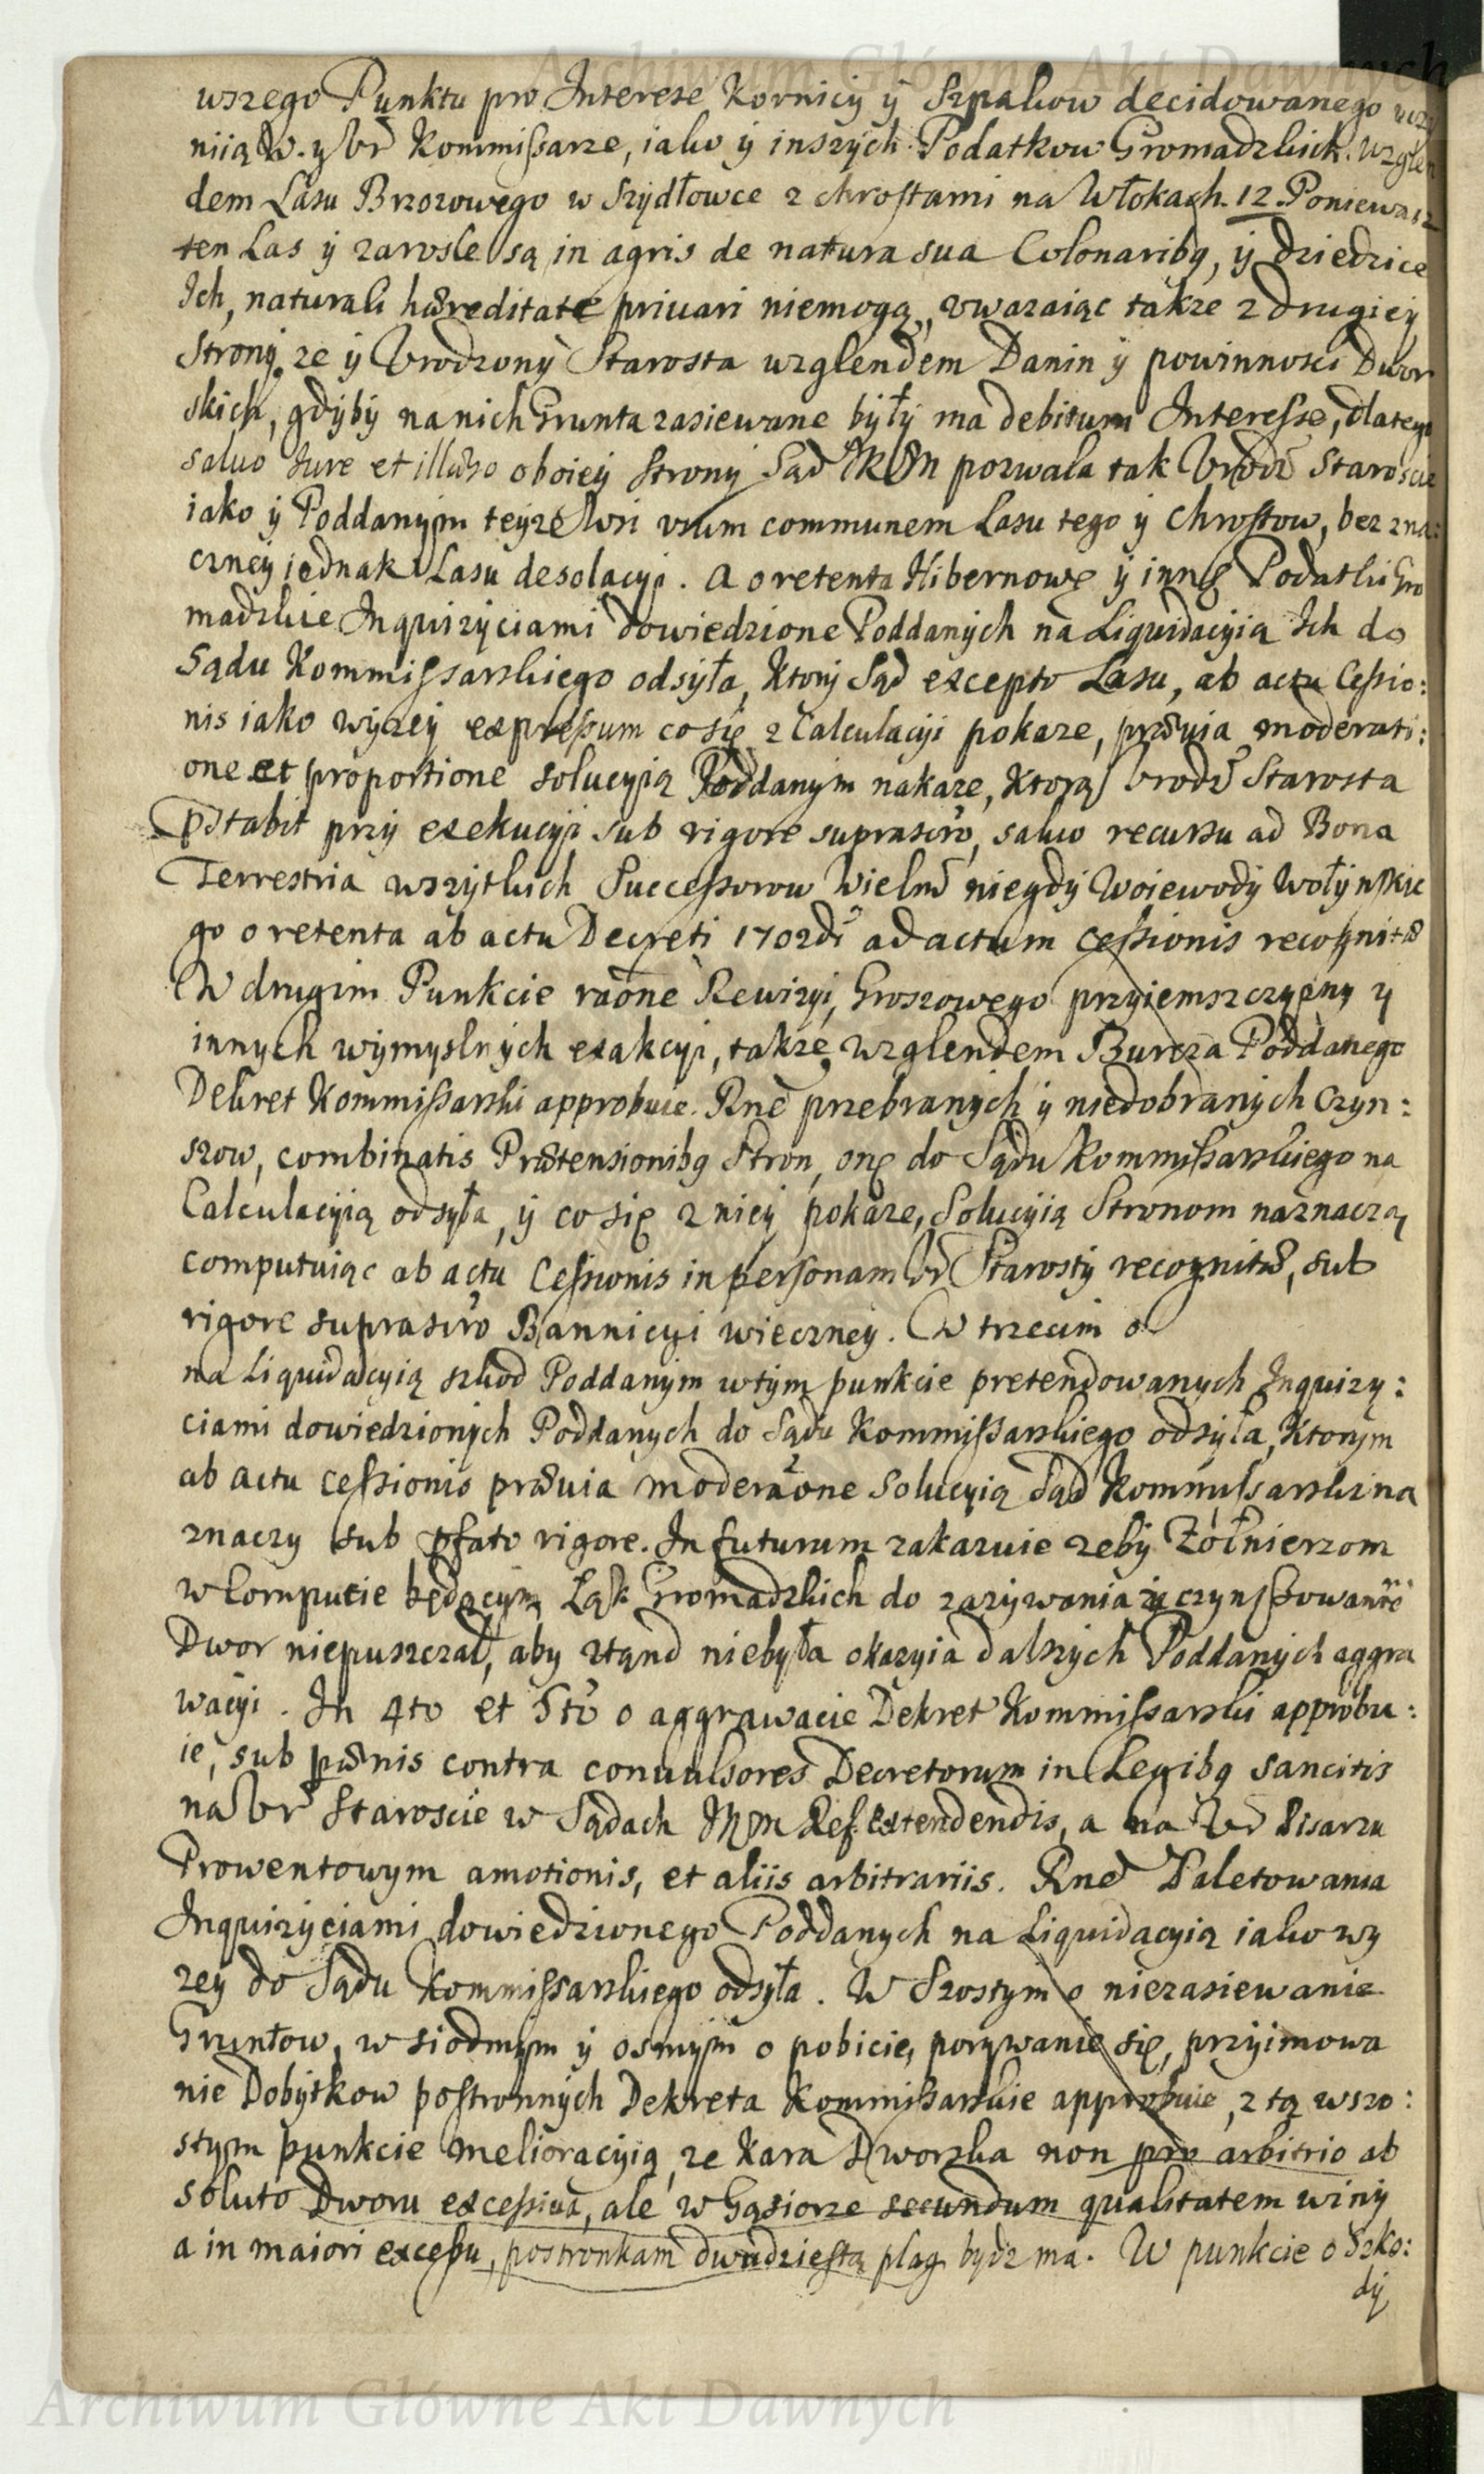 Archiwum Główne Akt Dawnych
wszego Punktu pro Interese Kornicy ÿ Szpakow decidowanego
niią W. y Ur Kommißarze, iako ÿ inszÿch Podatkow Gromadzkich. Wzglen
dem Lasu Brzozowego w Szÿdłowce z chrostami na Włokach. 12. Poniewasz
ten Las ÿ zarosle są in agris de natura sua Colonaribq, ÿ dziedzice
Ich, naturali hæreditate priuari niemogą, vwazaiąc takze z drugieÿ
Stronÿ, ze ÿ Vrodzonÿ Starosta wzglendem Danin ÿ powinnosci Dwor
skich, gdÿbÿ na nich Grunta zasiewane bÿłÿ ma debitum Interesse, dlatego
saluo Iure et illæso oboieÿ Stronÿ Sąd JKM pozwala tak Vrodz Staroscie
iako ÿ Poddanÿm teÿze Wsi vsum communem Lasu tego ÿ Chrostow, bez zna:
czneÿ iednak Lasu desolacyi. A o retenta Hibernowe ÿ inne Podatki Gro
madzkie Inquizÿciami dowiedzione Poddanÿch na Liquidacyią Ich do
Sądu Kommißarskiego odsÿła, Ktorÿ Sąd excepto Lasu, ab actu Ceßio:
nis iako wÿzeÿ expreßum co się z Calculacÿi pokaze, præuia moderati:
one et proportione solucyią Poddanÿm nakaze, Ktorą Vrodz Starosta
pstabit przÿ exekucyi sub rigore suprascro, saluo recursu ad Bona
Terrestria wszÿtkich Succeßorow Wielm niegdÿ Woiewodÿ Wołÿnskie
go o retenta ab actu Decreti 1702di ad actum ceßionis recognitæ
W drugim Punkcie raone Rewizÿi, Groszowego przÿiemszczyznÿ y
innÿch wÿmyslnÿch exakcyi, takze wzglendem Burcza Poddanego
Dekret Kommißarski approbuie. Rne przebranÿch ÿ niedobranÿch Czyn:
szow, combinatis Prætensionibq Stron, one do Sądu Kommißarskiego na
Calculacyią odsyła, ÿ co się z nieÿ pokaze, Solucyią Stronom naznaczą
computuiąc ab actu Ceßionis in personam Vr Starostÿ recognitæ, sub
rigore suprascro Bannicyi wieczneÿ. W trzecim o
na Liquidacyią szkod Poddanÿm w tÿm punkcie pretendowanÿch Inquizÿ:
ciami dowiedzionÿch Poddanÿch do Sądu Kommißarskiego odsÿła, Ktorym
ab actu ceßionis præuia moderaone Solucyią Sąd Kommißarski na
znaczy sub pfato rigore. In futurum zakazuie zebÿ Zołnierzom
w Komputie będącym Ląk Gromadzkich do zazÿwania ÿ czynszowanie
Dwor niepuszczał, aby ztąnd niebyła okazyia dalszÿch Poddanÿch aggra
wacÿi. In 4to et 5to o aggrawacie Dekret Kommißarski approbu:
ie, sub pænis contra conuulsores Decretorum in Legibq sancitis
na Vr Staroscie w Sądach JKM Ref. extendendis, a na Vr Pisarzu
Prowentowym amotionis, et aliis arbitrariis. Rne Paletowania
Inquizÿciami dowiedzionego Poddanÿch na Liquidacyią iako wy
zeÿ do Sądu Kommißarskiego odsÿła. W Szostym o niezasiewanie
Gruntow, w siodmÿm ÿ osmÿm o pobicie, porywanie się, przÿimowa
nie Dobÿtkow postronnÿch Dekreta Kommißarskie approbuie, z tą w szo:
stÿm punkcie melioracyią, ze Kara Dworska non pro arbitrio ab
soluto Dworu exceßiua, ale w Gąsiorze secundum qualitatem winÿ
a in maiori exceßu, postronkam dwudziestą plag bydz ma. W punkcie o Szko:
dÿ
Archiwum Główne Akt Dawnych